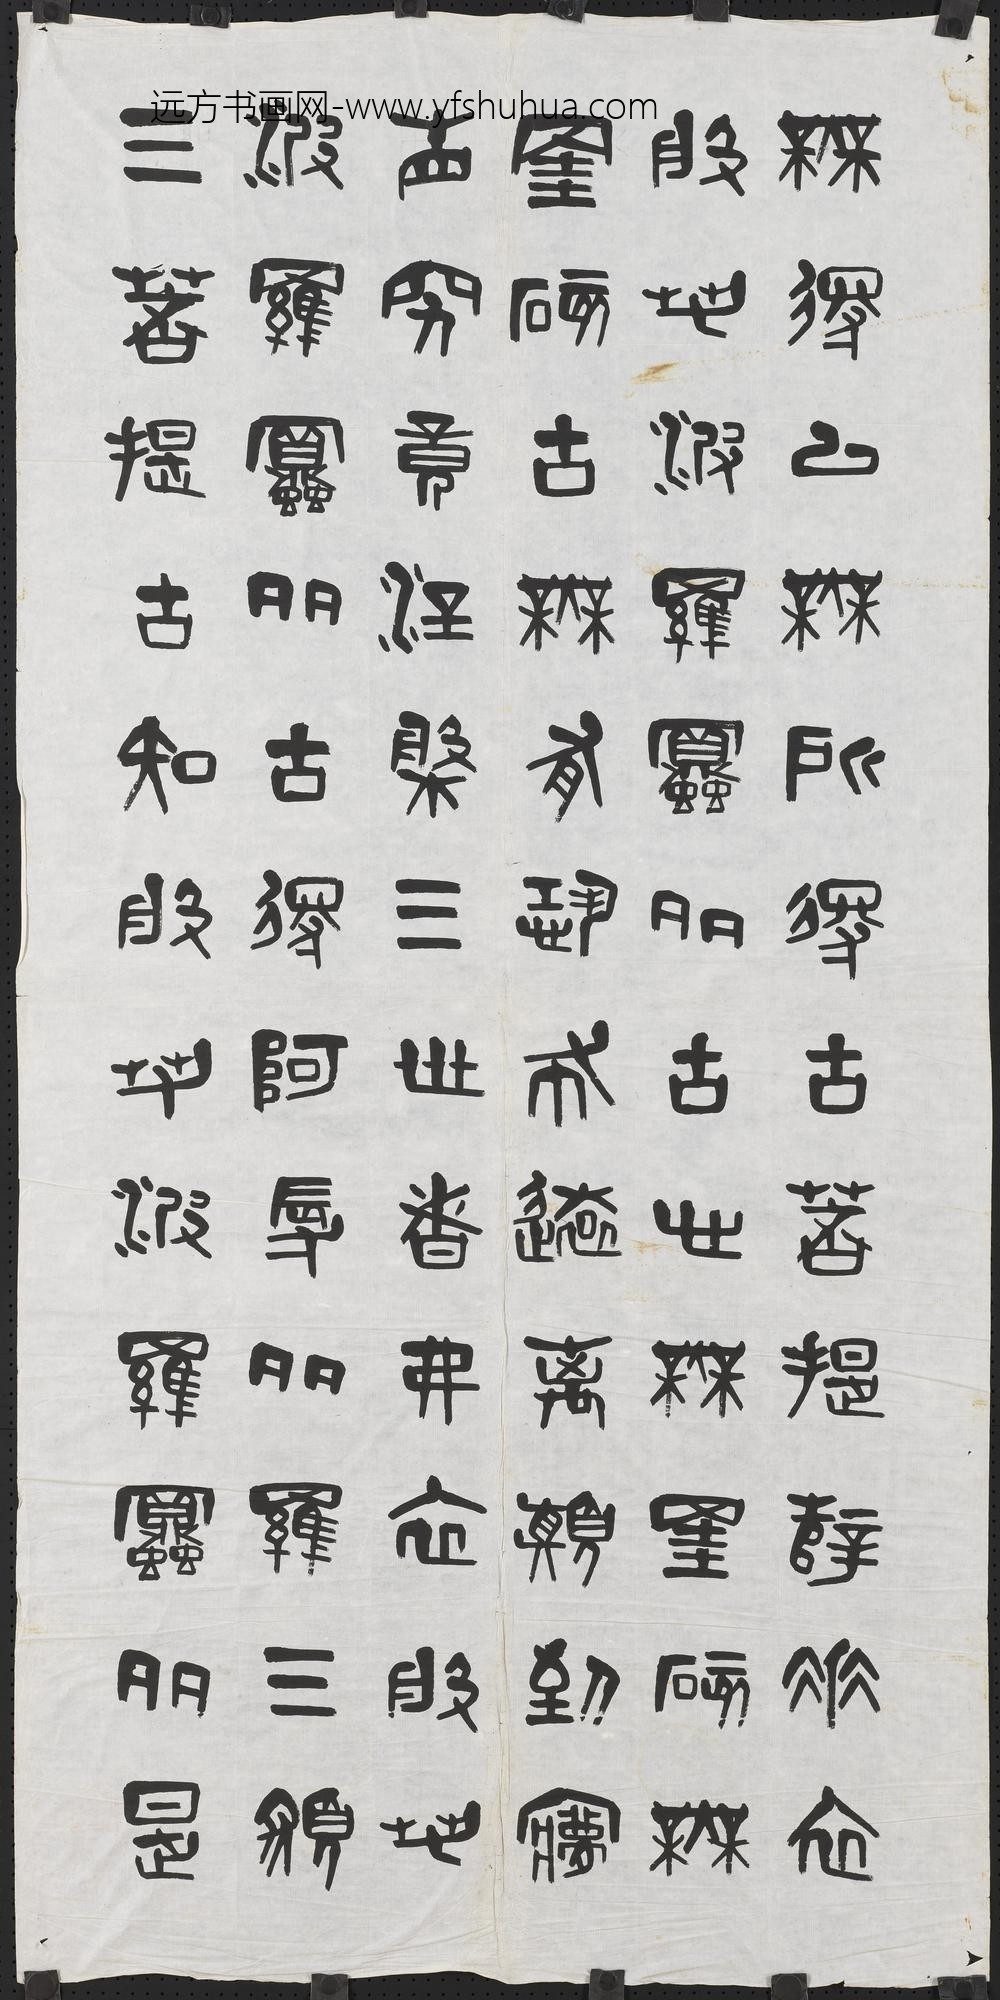 無得以無所得故菩提薩埵依
般地波羅蜜多故心無罣礙無
罣礙故無有恐怖遠離顛倒夢
想究竟涅槃三世諸佛依般地
波羅蜜多故得阿耨多羅三藐
三菩提故知般地波羅蜜多是
远方书画网-www.yfshuhua.com